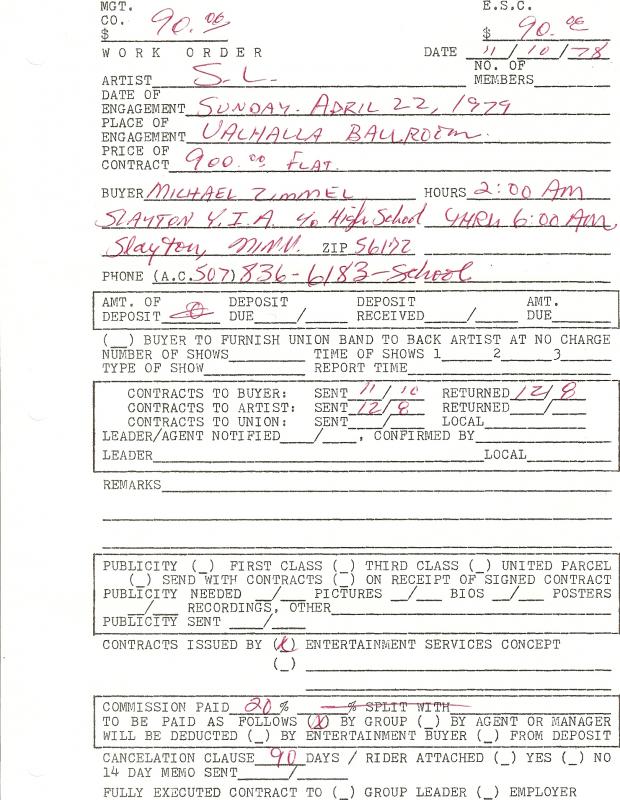 MGT. E.S.C.
CO.
$ 90.00 $ 90.00
WORK ORDER DATE 11/10/78
NO. OF
ARTIST S. L. MEMBERS
DATE OF
ENGAGEMENT SUNDAY. APRIL 22, 1979
PLACE OF
ENGAGEMENT VALHALLA BALLROOM.
PRICE OF
CONTRACT 900.00 FLAT.
BUYER MICHAEL ZIMMEL HOURS 2:00 AM
SLAYTON Y.I.A. c/o High School THRU 6:00 AM
Slayton, MINN. ZIP 56172
PHONE (A.C.507) 836-6183-School
AMT. OF DEPOSIT DEPOSIT AMT.
DEPOSIT 0 DUE / RECEIVED / DUE
(_) BUYER TO FURNISH UNION BAND TO BACK ARTIST AT NO CHARGE
NUMBER OF SHOWS TIME OF SHOWS 1 2 3
TYPE OF SHOW REPORT TIME
CONTRACTS TO BUYER: SENT 11/10 RETURNED 12/8
CONTRACTS TO ARTIST: SENT 12/8 RETURNED /
CONTRACTS TO UNION: SENT / LOCAL
LEADER/AGENT NOTIFIED / , CONFIRMED BY
LEADER LOCAL
REMARKS
PUBLICITY (_) FIRST CLASS (_) THIRD CLASS (_) UNITED PARCEL
(_) SEND WITH CONTRACTS (_) ON RECEIPT OF SIGNED CONTRACT
PUBLICITY NEEDED / PICTURES / BIOS / POSTERS
/ RECORDINGS, OTHER
PUBLICITY SENT /
CONTRACTS ISSUED BY (X) ENTERTAINMENT SERVICES CONCEPT
(_)
COMMISSION PAID 20 % % SPLIT WITH
TO BE PAID AS FOLLOWS (X) BY GROUP (_) BY AGENT OR MANAGER
WILL BE DEDUCTED (_) BY ENTERTAINMENT BUYER (_) FROM DEPOSIT
CANCELATION CLAUSE 90 DAYS / RIDER ATTACHED (_) YES (_) NO
14 DAY MEMO SENT /
FULLY EXECUTED CONTRACT TO (_) GROUP LEADER (_) EMPLOYER